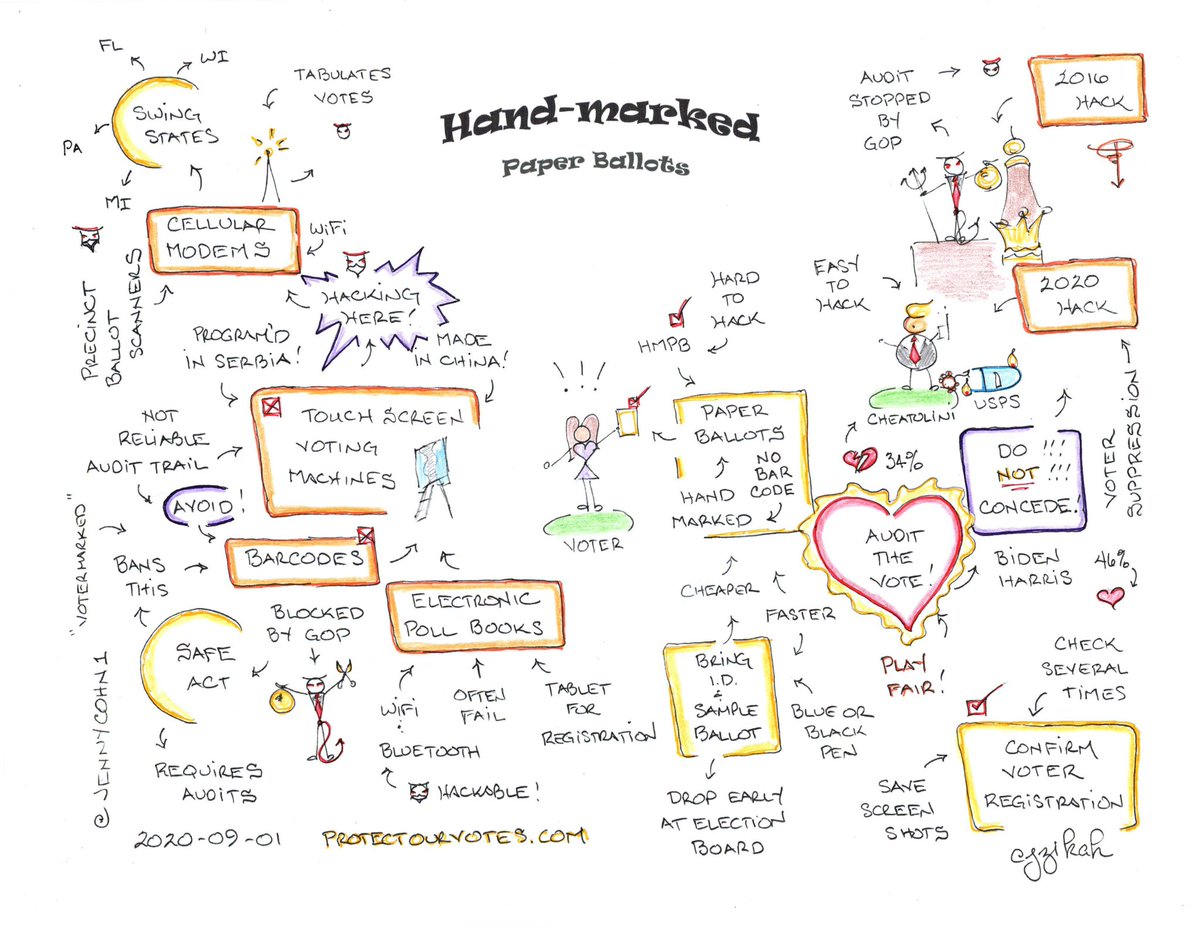 Hand-marked
Paper Ballots
FL
WI
PA
MI
SWING
STATES
TABULATES
VOTES
CELLULAR
MODEMS
WIFI
PRECINCT
BALLOT
SCANNERS
HACKING
HERE!
PROGRAM'D
IN SERBIA!
MADE
IN CHINA!
TOUCH SCREEN
VOTING
MACHINES
NOT
RELIABLE
AUDIT TRAIL
AVOID!
"VOTERMARKED"
BANS
THIS
BARCODES
ELECTRONIC
POLL BOOKS
BLOCKED
BY GOP
SAFE
ACT
REQUIRES
AUDITS
WIFI
BLUETOOTH
OFTEN
FAIL
TABLET
FOR
REGISTRATION
HACKABLE!
@JENNYCOHN1
2020-09-01
PROTECTOURVOTES.COM
!!!
VOTER
HARD
TO
HACK
HMPB
PAPER
BALLOTS
HAND
MARKED
NO
BAR
CODE
CHEAPER
FASTER
BRING
I.D.
&
SAMPLE
BALLOT
BLUE OR
BLACK
PEN
DROP EARLY
AT ELECTION
BOARD
AUDIT
STOPPED
BY
GOP
2016
HACK
2020
HACK
EASY
TO
HACK
CHEATOLINI
USPS
34%
AUDIT
THE
VOTE!
PLAY
FAIR!
DO !!!
NOT !!!
CONCEDE!
VOTER
SUPPRESSION
BIDEN
HARRIS
46%
CHECK
SEVERAL
TIMES
CONFIRM
VOTER
REGISTRATION
SAVE
SCREEN
SHOTS